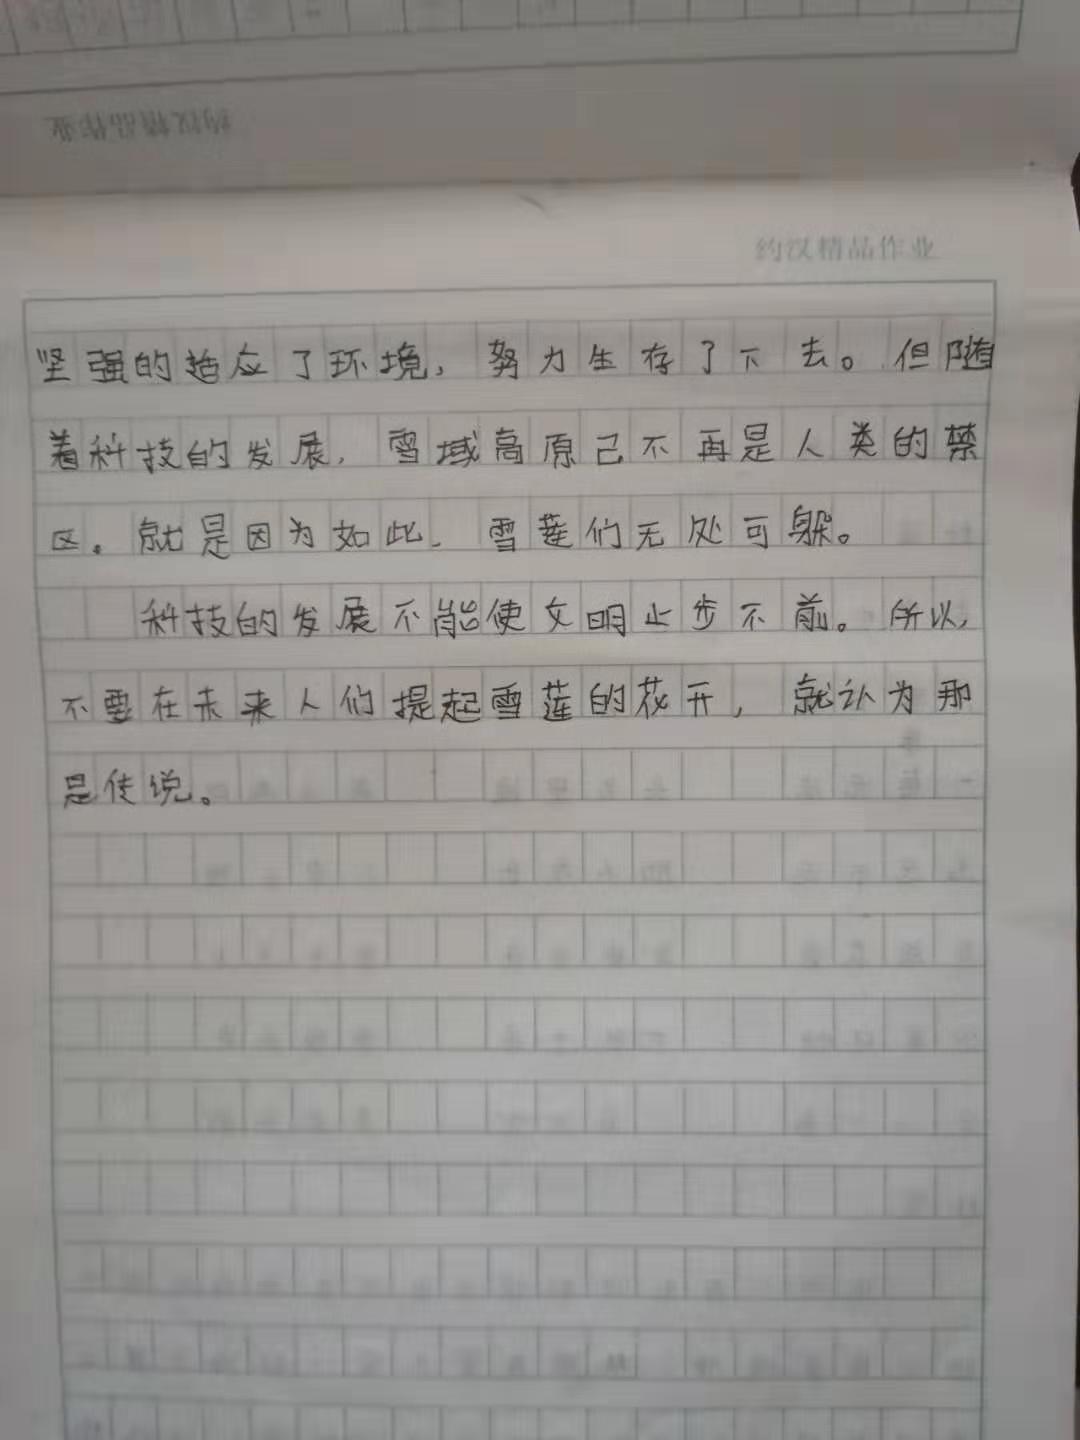 约汉精品作业
约汉精品作业
坚强的适应了环境，努力生存了下去。但随
着科技的发展，雪域高原已不再是人类的禁
区。就是因为如此，雪莲们无处可躲。
科技的发展不能使文明止步不前。所以，
不要在未来人们提起雪莲的花开，就认为那
是传说。